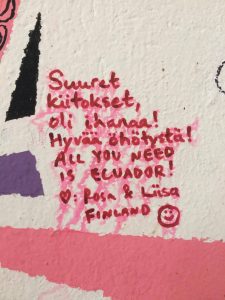 Suuret
kiitokset,
oli ihanaa!
Hyvää öhötystä!
ALL YOU NEED
IS ECUADOR!
♡: Rosa & Liisa
FINLAND ☺